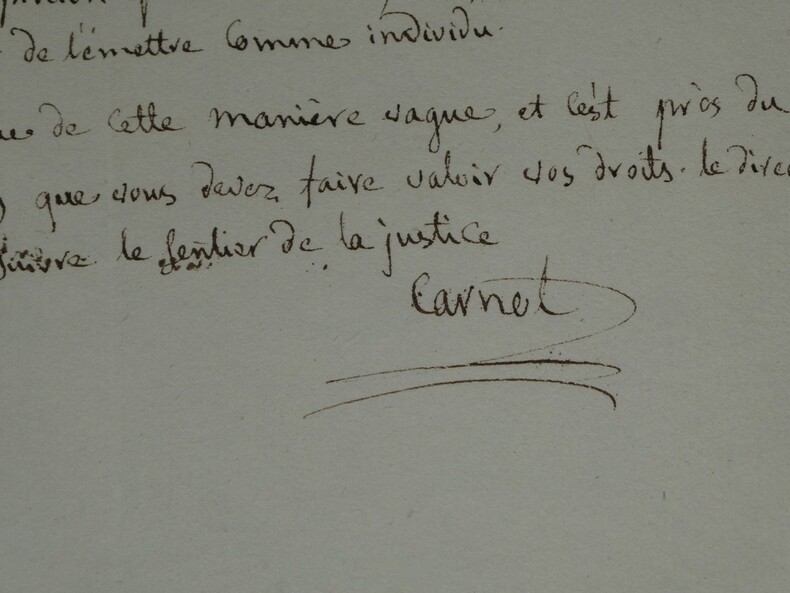 de l'émettre comme individu.
de cette manière vague, et c'est près du
que vous devez faire valoir vos droits. le direc
suivre le sentier de la justice
Carnot